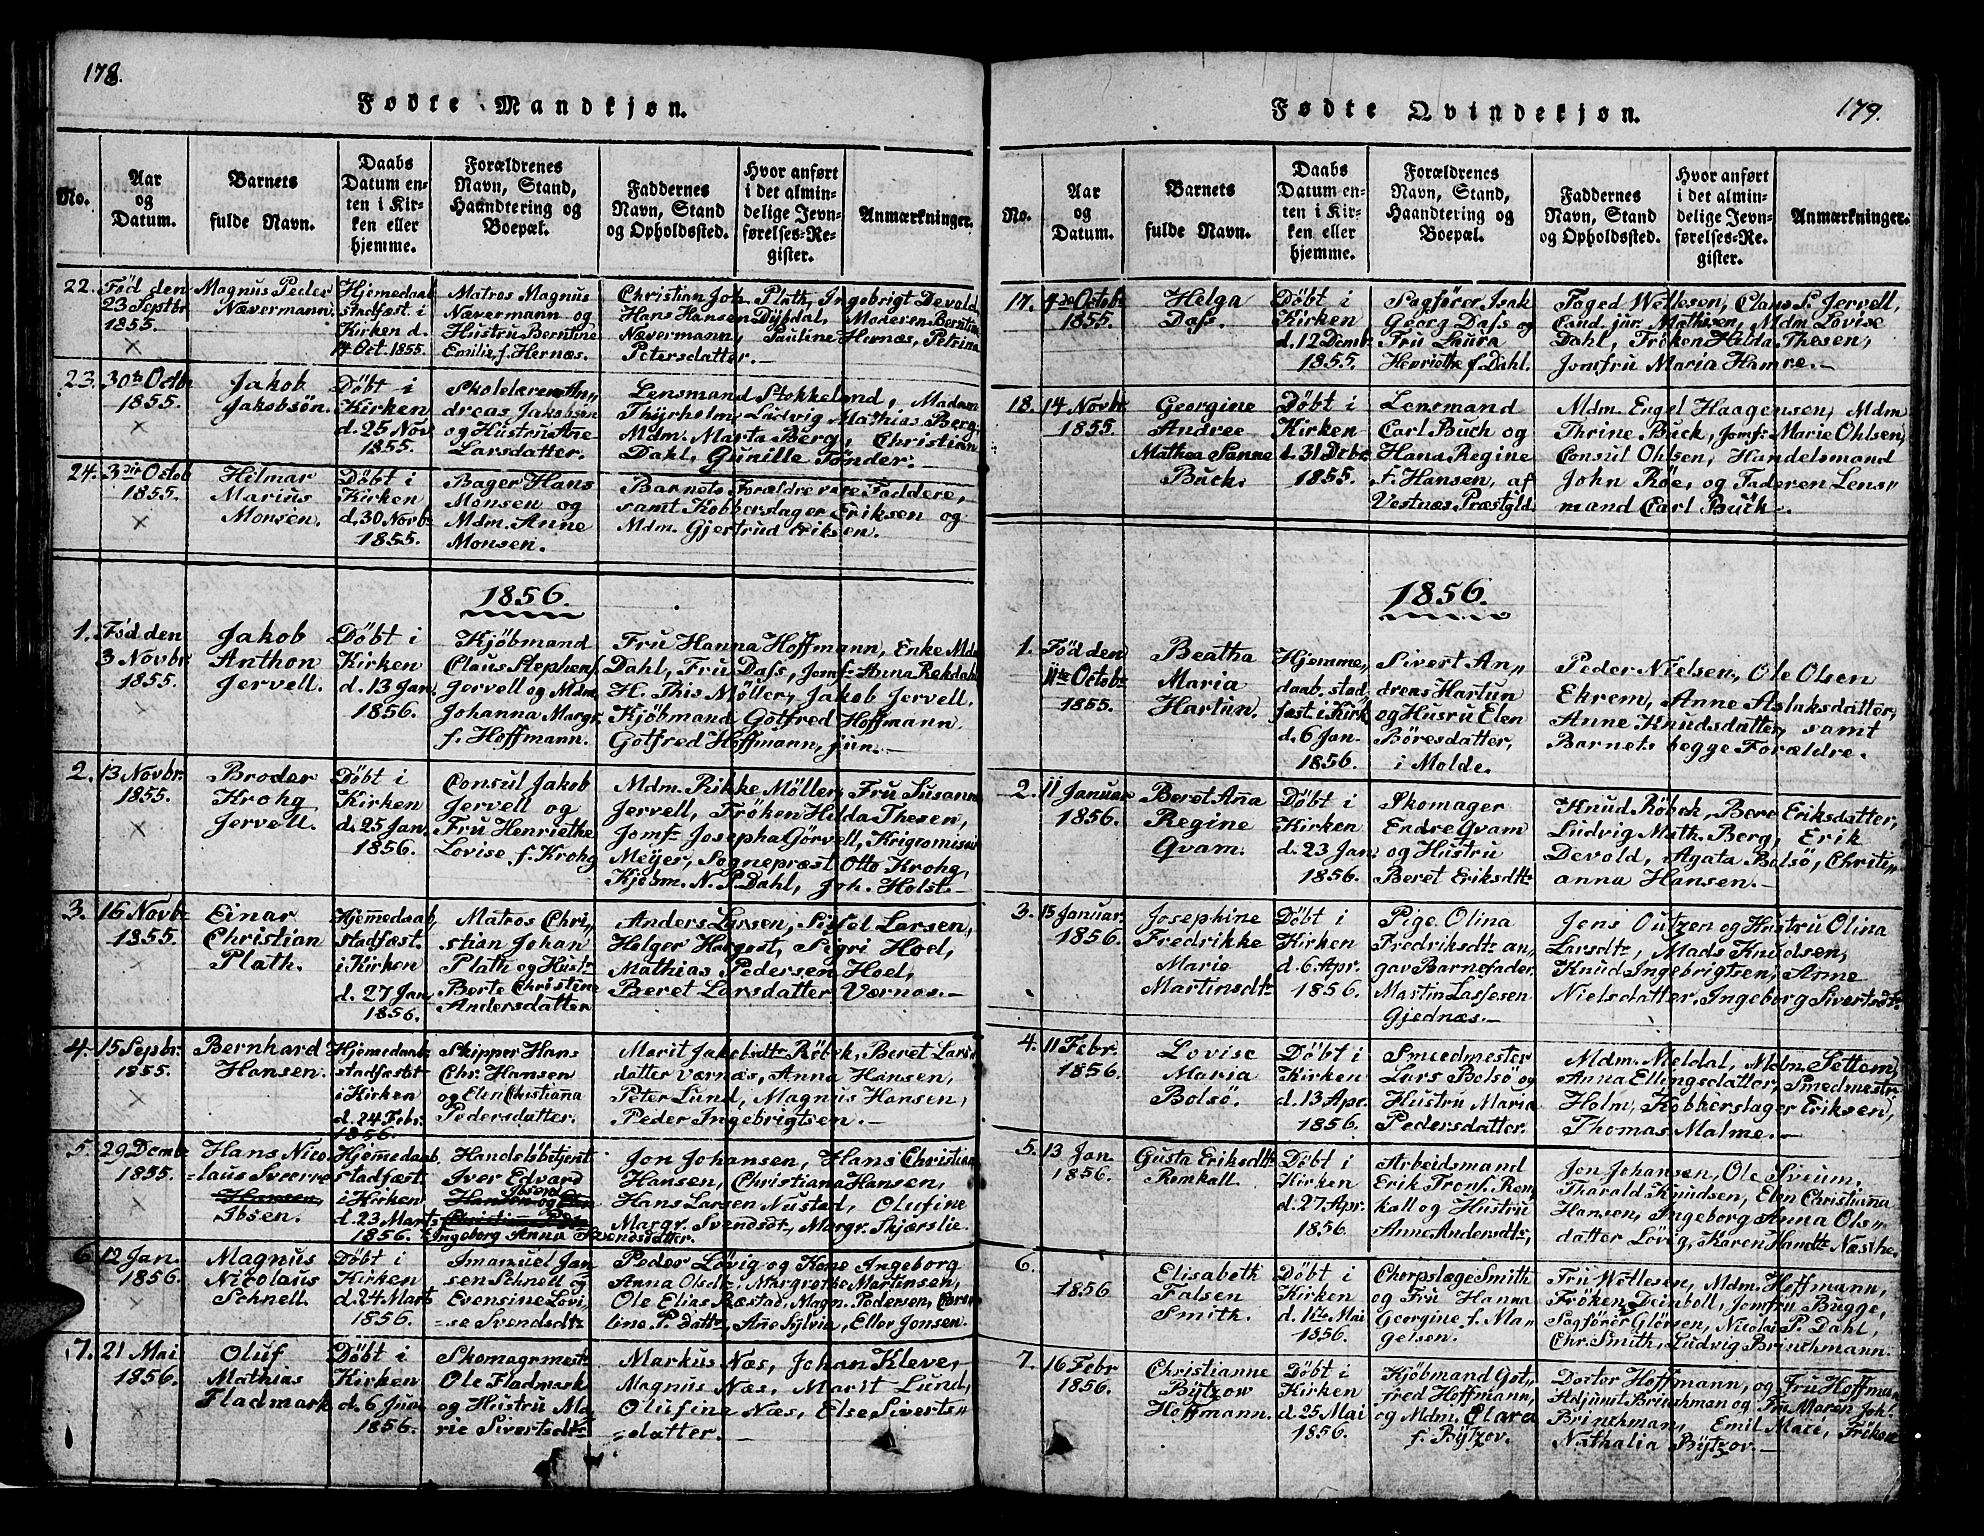 178.
Fødte Mandkjøn.
No.
Aar
og
Datum.
Barnets
fulde Navn.
Daabs
Datum en-
ten i Kir-
ken eller
hjemme.
Forældrenes
Navn, Stand,
Haandtering og
Boepæl.
Faddernes
Navn, Stand
og Opholdssted.
Hvor anført
i det almin-
delige Jevn-
førelses-Re-
gister.
Anmærkninger.
22.
Fød den
23 Septbr
1855.
Magnus Peder
Nævermann.
Hjemedaab
stadfæst. i
Kirken d.
14 Oct. 1855.
Matros Magnus
Nævermann og
Hustru Berntine
Emilie, f. Hernæs.
Christian Joh. Plath, Ingebrigt Devold
Hans Hansen Dybdal, Madesen Berntine
Nævermann, Pauline Hernæs, Petrina
Petersdatter. —
23.
30te Octb.
1855.
Jakob
Jakobsön.
Döbt i
Kirken
d. 25 Nov
1855.
Skolelærer An„
dreas Jakobsen
og Hustru Ane
Larsdatter.
Lensmand Stokkeland, Madam
Thyrholm, Ludvig Mathias Berg
Mdm. Marta Berg, Christian
Dahl, Gunille Tönder.
24.
3die Octob
1855.
Hilmar
Marius
Monsen.
Döbt i
Kirken
d. 30 Novb.
1855.
Bager Hans
Monsen og
Mdm. Anne
Monsen.
Barnets Forældre vare Faddere,
samt Kobberslager Eriksen og
Mdm. Gjertrud Eriksen.
1856.
1.
Fød den
3 Novbr.
1855.
Jakob
Anthon
Jervell.
Döbt i
Kirken
d. 13 Jan.
1856.
Kjöbmand
Claus Stephens.
Jervell og Mdm.
Johanna Margr.
f. Hoffmann.
Fru Hanna Hoffmann, Enke Mdm
Dahl, Fru Dass, Jomf. Anna Rekdahl
H. This Möller, Jakob Jervell.
Kjöbmand Gotfred Hoffmann
Gotfred Hoffmann, jun. —
2.
13 Novbr.
1855.
Broder
Krohg
Jervell.
Döbt i
Kirken
d. 25 Jan.
1856.
Consul Jakob
Jervell og
Fru Henriethe
Lovise f. Krohg
Mdm. Rikke Möller, Fru Susann
Jervell, Fröken Hilda Thesen,
Jomf. Josepha Görvell, Krigscomisair
Meyer, Sognepræst Otto Krohg,
Kjöbm. N. P. Dahl, Joh. Holst.
3.
16 Novbr
1855.
Einar
Christian
Plath.
Hjemedaab
stadfæst.
i Kirken
d. 27 Jan.
1856.
Matros Chri„
stian Johan
Plath og Hust.
Berte Christine
Andersdatter
Anders Larsen, Sissel Larsen,
Holger Hoel,
Mathias Pedersen Hoel,
Beret Larsdatter Værnæs. —
4.
15 Sepbr.
1855.
Bernhard
Hansen.
Hjemedaab
stadfæst
i Kirken
d. 24 Febr.
1856.
Skipper Hans
Chr. Hansen
og Elen Christiana
Pedersdatter.
Marit Jakobsdtr Röbek, Beret Lars
datter Værnæs, Anna Hansen,
Peter Lund, Magnus Hansen,
Peder Ingebrigtsen. —
5.
29 Decmbr
1855.
Hans Nico
=laus Sverre
Hansen
Ibsen.
Hjemedaab
stadfæst
i Kirken
d. 23 Marts
1856.
Handelsbetjent
Iver Edvard
Ibsen
Hansen og
Christiana
Ingeborg Anna Svendsdatter.
Jon Johansen, Hans Christian
Hansen, Christiana Hansen,
Hans Larsen Nustad, Olufine
Margr. Svendsdt, Margr. Skjærslie.
6.
12 Jan.
1856.
Magnus
Nicolaus
Schnell.
Döbt i
Kirken
d. 24 Marts
1856.
Imanuel Jan
sen Schnell og
Evensine Lovi„
=se Svendsdtr
Peder Lövig og Kone Ingeborg
Anna Olsdt, Margrethe Mortensen,
Ole Elias Ræstad, Magn. Pedersen, Caro
line P. datter, Ane Sylvia, Ellor Jonsen.
7.
21 Mai
1856.
Oluf
Mathias
Fladmark
Döbt i
Kirken
d. 6 Juni
1856.
Skomagrmest
Ole Fladmark
og Hustru Ma„
rie Sivertsdtr
Markus Næs, Johan Kleve,
Magnus Næs, Marit Lund,
Olufine Næs, Else Siverts„
=datter.
179.
Fødte Qvindekjøn.
No.
Aar
og
Datum.
Barnets
fulde Navn.
Daabs
Datum en-
ten i Kir-
ken eller
hjemme.
Forældrenes
Navn, Stand,
Haandtering og
Boepæl.
Faddernes
Navn, Stand
og Opholdssted.
Hvor anført
i det almin-
delige Jevn-
førelses-Re-
gister.
Anmærkninger.
17.
4de Octob.
1855.
Helga
Dass.
Döbt i
Kirken
d. 12 Decmb.
1855.
Sagförer, Isak
Georg Dass og
Fru Laura
Henriette f. Dahl.
Foged Wettesen, Claus S. Jervell,
Cand. jur. Mathisen, Mdm. Lovise
Dahl, Fröken Hilda Thesen,
Jomfru Maria Hamre. —
18.
14 Novbr
1855.
Georgine
Andree
Mathea Sanne
Buch.
Döbt i
Kirken
d. 31 Decbr
1855.
Lensmand
Carl Buch og
Hana Regine
f. Hansen, af
Vestnæs Præstgld.
Mdm. Engel Haagensen, Mdm
Thrine Buck, Jomf: Marie Ohlsen,
Consul Ohlsen, Handelsmand
John Röe, og Faderen Lens„
mand Carl Büch.
1856.
1.
Fød den
11te Octob.
1855.
Beatha
Maria
Hartun.
Hjemme„
daab. stad„
fæst. i Kirk
d. 6 Jan.
1856.
Sivert An„
dreas Hartun
og Husru Elen
Böresdatter,
i Molde.
Peder Nielsen, Ole Olsen
Ekrem, Anne Aslaksdatter,
Anne Knudsdatter, samt
Barnets begge Forældre.
2.
11 Januar
1856.
Beret Aña
Regine
Qvam.
Döbt i
Kirken
d. 23 Jan
1856.
Skomager
Endre Qvam
og Hustru
Beret Eriksdtr
Knud Röbek, Bere Eriksdatter,
Ludvig Math. Berg, Erik
Devold, Agata Bolsö, Christi„
anna Hansen. —
3.
15 Januar.
1856.
Josephine
Fredrikke
Marie
Martinsdtr
Döbt i
Kirken
d. 6 Apr.
1856.
Pige Olina
Fredriksdtr an„
gav Barnefader
Martin Lassesen
Gjednæs. —
Jens Outzen og Hustru Olina
Larsdtr, Mads Knudsen,
Knud Ingebrigtsen, Anne
Nielsdatter, Ingeborg Sivertsdtr
4.
11 Febr.
1856.
Lovise
Maria
Bolsö.
Döbt i
Kirken
d. 13 Apr.
1856.
Smedmester
Lars Bolsö og
Hustru Maria
Pedersdatter.
Mdm. Meldal, Mdm. Settem,
Anna Ellingsdatter, Smedmestr
Holm, Kobberslager Eriksen,
Thomas Malme. —
5.
13 Jan
1856.
Gusta Eriksdtr
Remkall.
Döbt i
Kirken
d. 27 Apr.
1856.
Arbeidsmand
Erik Trons. Rem
kall og Hustru
Anne Andersdtr,
Jon Johansen, Ole Sveum,
Tharald Knudsen, Elen Christiana
Hansen, Ingeborg Anna Ols„
datter Lövig, Karen Hansdtr Næsthe,
6.
1856
Elisabeth
Falsen
Smith.
Döbt i
Kirken
d. 1ste Mai
1856.
Chorpslæge Smith
og Fru Hanna
Georgine f. Ma„
gelsen.
Fru Wettesen, Mdm. Hoffmann,
Fröken Deinboll, Jomfru Bugge,
Sagförer Glörsen, Nicolai P. Dahl,
Chr. Smith, Ludvig Brinchmann.
7.
16 Febr
1856.
Christianne
Bytzow
Hoffmann.
Döbt i
Kirken
d. 25 Mai
1856.
Kjöbmand Got„
fred Hoffmann,
og Mdm. Clara
f. Bytzov.
Doctor Hoffmann, og Fru Hoffmann
Adjunct Brinchman og Fru Maren Joh.
Brinchman, Emil Mace, Fröken
Nathalia Bytzov. —